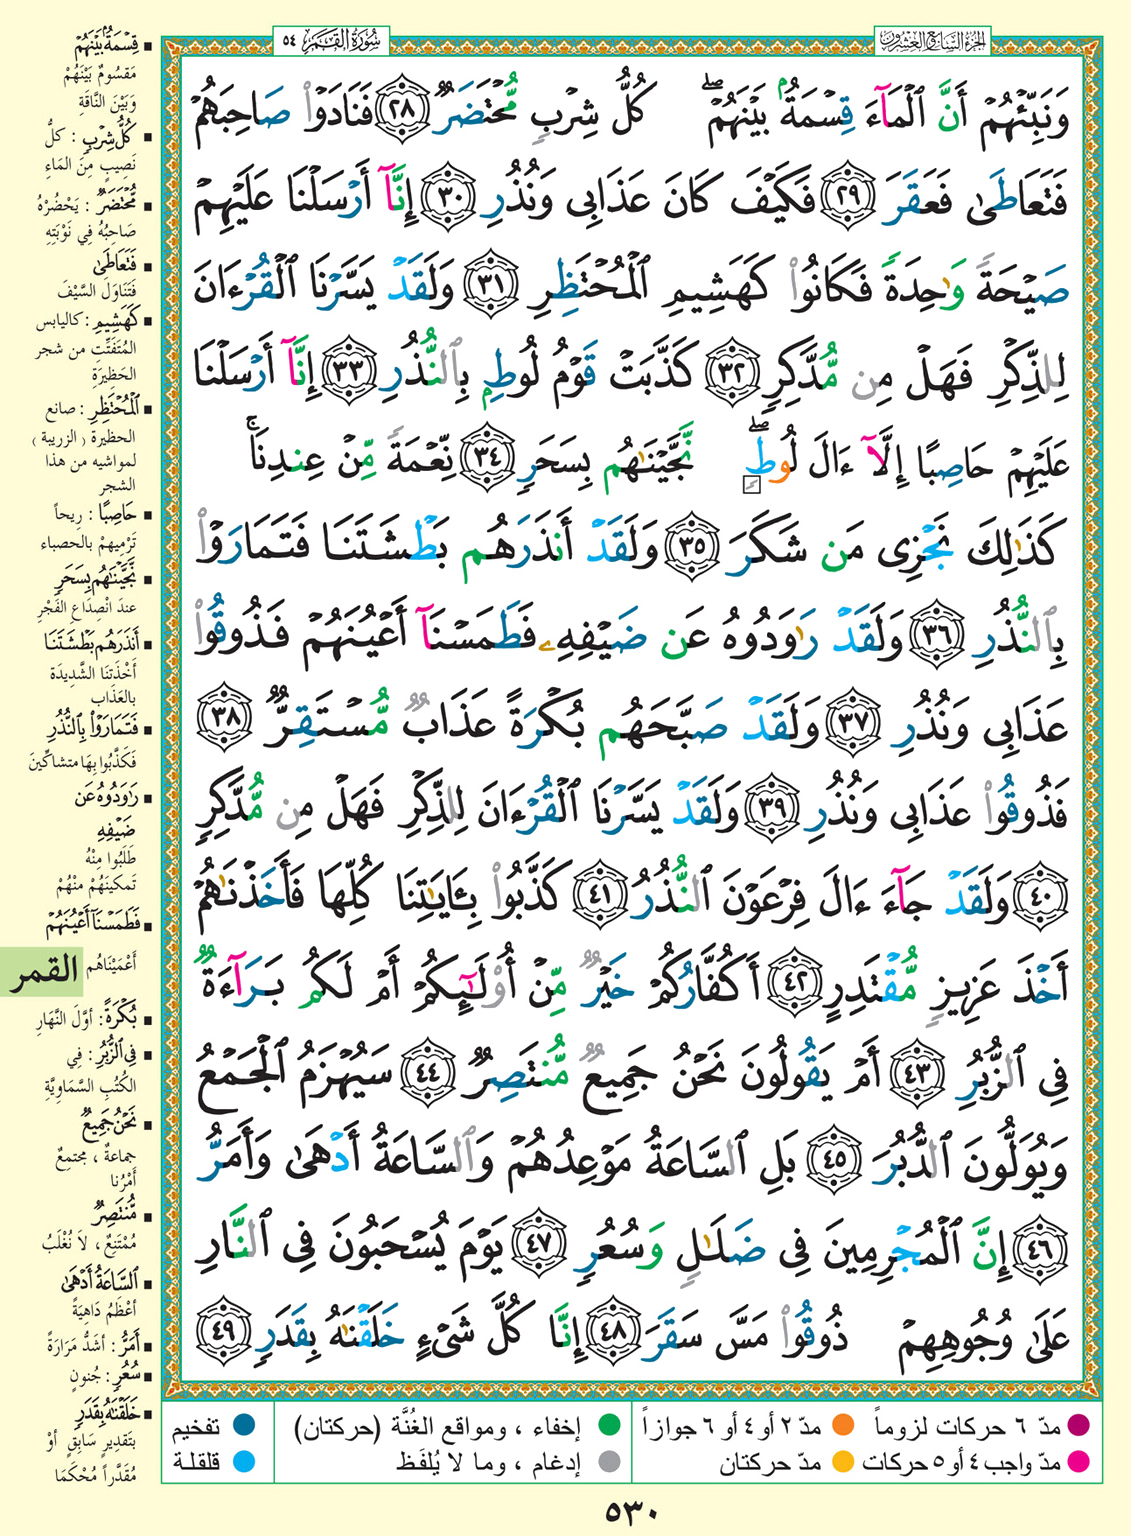 الجزء السابع والعشرون
سورة القمر ٥٤
وَنَبِّئْهُمْ أَنَّ ٱلْمَآءَ قِسْمَةٌۢ بَيْنَهُمْ ۖ كُلُّ شِرْبٍ مُّحْتَضَرٌ ٢٨ فَنَادَوْا۟ صَاحِبَهُمْ
فَتَعَاطَىٰ فَعَقَرَ ٢٩ فَكَيْفَ كَانَ عَذَابِى وَنُذُرِ ٣٠ إِنَّآ أَرْسَلْنَا عَلَيْهِمْ
صَيْحَةً وَٰحِدَةً فَكَانُوا۟ كَهَشِيمِ ٱلْمُحْتَظِرِ ٣١ وَلَقَدْ يَسَّرْنَا ٱلْقُرْءَانَ
لِلذِّكْرِ فَهَلْ مِن مُّدَّكِرٍ ٣٢ كَذَّبَتْ قَوْمُ لُوطٍۭ بِٱلنُّذُرِ ٣٣ إِنَّآ أَرْسَلْنَا
عَلَيْهِمْ حَاصِبًا إِلَّآ ءَالَ لُوطٍ ۖ نَّجَّيْنَٰهُم بِسَحَرٍ ٣٤ نِّعْمَةً مِّنْ عِندِنَا ۚ
كَذَٰلِكَ نَجْزِى مَن شَكَرَ ٣٥ وَلَقَدْ أَنذَرَهُم بَطْشَتَنَا فَتَمَارَوْا۟
بِٱلنُّذُرِ ٣٦ وَلَقَدْ رَٰوَدُوهُ عَن ضَيْفِهِۦ فَطَمَسْنَآ أَعْيُنَهُمْ فَذُوقُوا۟
عَذَابِى وَنُذُرِ ٣٧ وَلَقَدْ صَبَّحَهُم بُكْرَةً عَذَابٌ مُّسْتَقِرٌّ ٣٨
فَذُوقُوا۟ عَذَابِى وَنُذُرِ ٣٩ وَلَقَدْ يَسَّرْنَا ٱلْقُرْءَانَ لِلذِّكْرِ فَهَلْ مِن مُّدَّكِرٍ
٤٠ وَلَقَدْ جَآءَ ءَالَ فِرْعَوْنَ ٱلنُّذُرُ ٤١ كَذَّبُوا۟ بِـَٔايَٰتِنَا كُلِّهَا فَأَخَذْنَٰهُمْ
أَخْذَ عَزِيزٍ مُّقْتَدِرٍ ٤٢ أَكُفَّارُكُمْ خَيْرٌ مِّنْ أُو۟لَٰٓئِكُمْ أَمْ لَكُم بَرَآءَةٌ
فِى ٱلزُّبُرِ ٤٣ أَمْ يَقُولُونَ نَحْنُ جَمِيعٌ مُّنتَصِرٌ ٤٤ سَيُهْزَمُ ٱلْجَمْعُ
وَيُوَلُّونَ ٱلدُّبُرَ ٤٥ بَلِ ٱلسَّاعَةُ مَوْعِدُهُمْ وَٱلسَّاعَةُ أَدْهَىٰ وَأَمَرُّ
٤٦ إِنَّ ٱلْمُجْرِمِينَ فِى ضَلَٰلٍ وَسُعُرٍ ٤٧ يَوْمَ يُسْحَبُونَ فِى ٱلنَّارِ
عَلَىٰ وُجُوهِهِمْ ذُوقُوا۟ مَسَّ سَقَرَ ٤٨ إِنَّا كُلَّ شَىْءٍ خَلَقْنَٰهُ بِقَدَرٍ ٤٩
قِسْمَةٌۢ بَيْنَهُمْ
مَقسُومٌ بَيْنَهُمْ
وَبَيْنَ النَّاقَةِ
كُلُّ شِرْبٍ : كلُّ
نَصِيبٍ مِنَ المَاءِ
مُّحْتَضَرٌ : يَحْضُرُهُ
صَاحِبُهُ فِي نَوْبَتِهِ
فَتَعَاطَىٰ
فَتَنَاوَلَ السَّيْفَ
كَهَشِيمِ : كاليابس
المُتَفَتِّتِ من شجر
الحَظِيرَة
ٱلْمُحْتَظِرِ : صانع
الحظيرة ( الزريبة )
لمواشيه من هذا
الشجر
حَاصِبًا : رِيحاً
تَرْمِيهِمْ بالحصباء
نَّجَّيْنَٰهُم بِسَحَرٍ
عندَ انْصِدَاعِ الفَجْرِ
أَنذَرَهُم بَطْشَتَنَا
أَخْذَتَنَا الشَّدِيدَةَ
بالعَذَاب
فَتَمَارَوْا۟ بِٱلنُّذُرِ
فَكَذَّبُوا بِهَا متشاكِّينَ
رَٰوَدُوهُ عَن
ضَيْفِهِ
طَلَبُوا مِنْهُ
تَمكينَهُمْ مِنْهُمْ
فَطَمَسْنَآ أَعْيُنَهُمْ
أَعْمَيْنَاهُم
القمر
بُكْرَةً : أوَّلَ النَّهَارِ
فِى ٱلزُّبُرِ : فِي
الكُتُبِ السَّمَاوِيَّةِ
نَحْنُ جَمِيعٌ
جماعةٌ ، مجتمِعٌ
أَمْرُنا
مُّنتَصِرٌ
مُمْتَنِعٌ ، لاَ نُغْلَبُ
ٱلسَّاعَةُ أَدْهَىٰ
أعْظَمُ دَاهِيَةً
أَمَرُّ : أشَدُّ مَرَارَةً
سُعُرٍ : جُنونٍ
خَلَقْنَٰهُ بِقَدَرٍ
بتَقدِيرٍ سَابِقٍ أوْ
مُقَدَّراً مُحْكَمَا
مدّ ٦ حركات لزوماً
مدّ ٢ أو ٤ أو ٦ جوازاً
إخفاء ، ومواقع الغُنَّة (حركتان)
تفخيم
مدّ واجب ٤ أو ٥ حركات
مدّ حركتان
إدغام ، وما لا يُلفَظ
قلقلة
٥٣٠